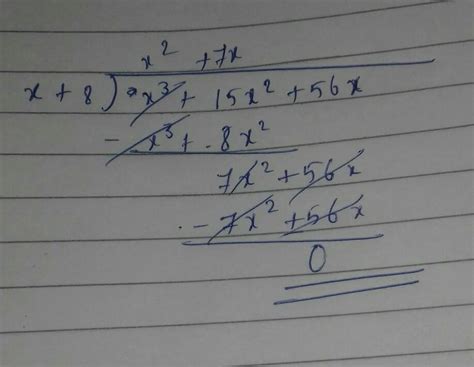 x² + 7x
x + 8 ) x³ + 15x² + 56x
- x³ + 8x²
7x² + 56x
- 7x² + 56x
0